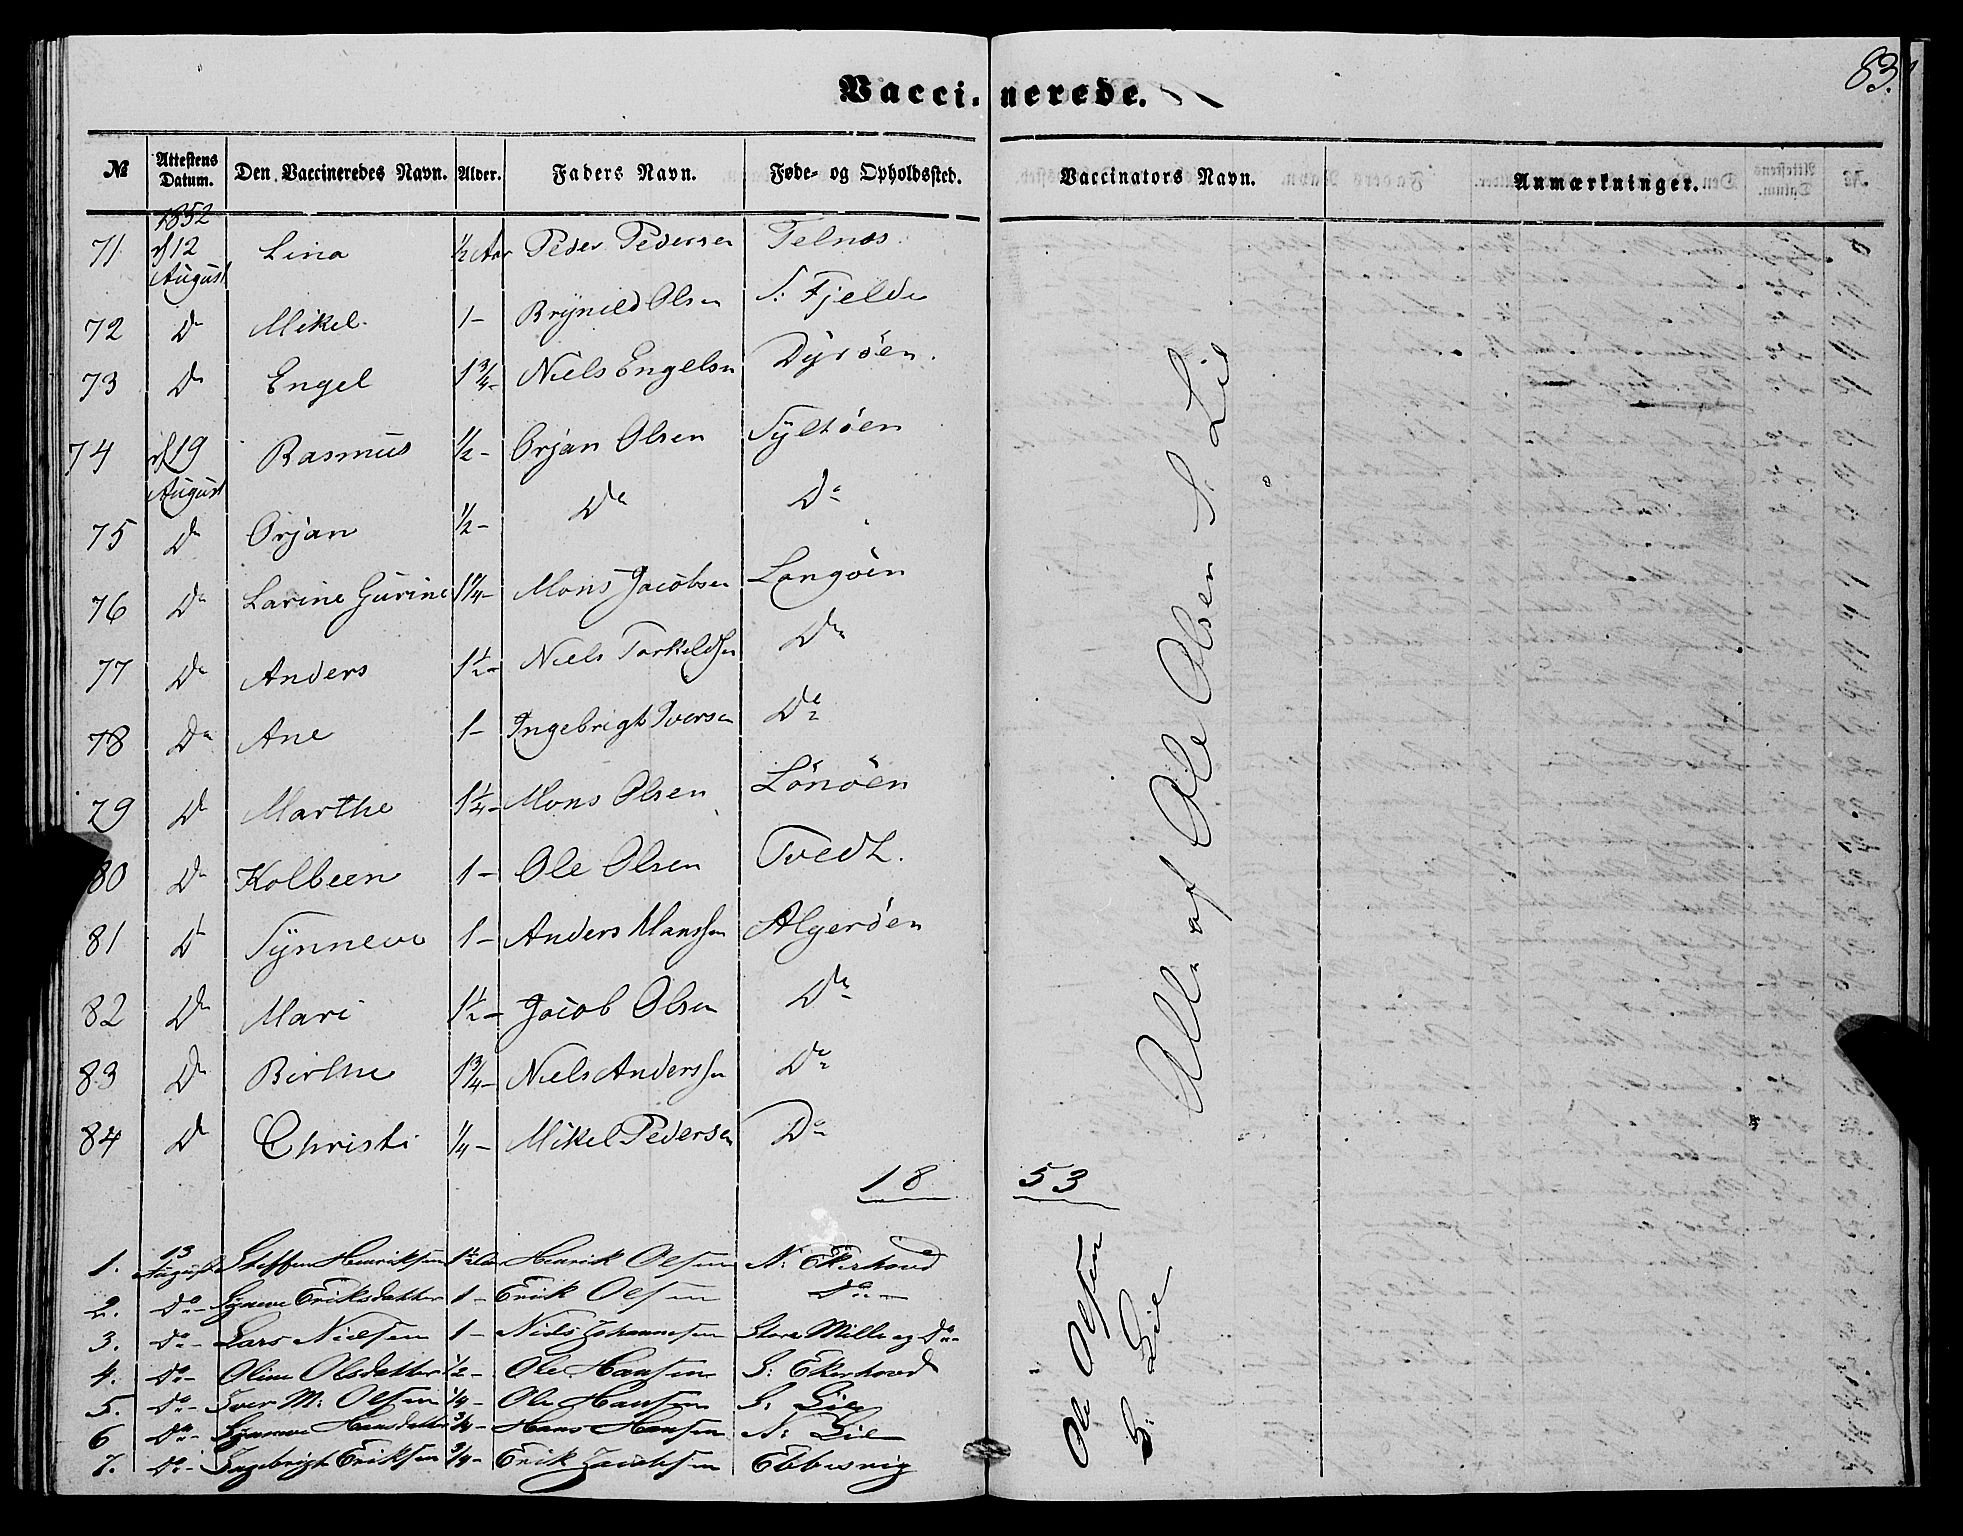 83.
Vaccinerede.
№ Attestens Datum. Den Vaccineredes Navn. Alder. Faders Navn. Føde- og Opholdssted. Vaccinators Navn. Anmærkninger.
1852
71 d 12 August Lina ½ Aar Peder Pedersen Telnes
72 Do Mikel 1- Brynild Olsen S: Fjelde
73 Do Engel 1¾- Niels Engelsen Dyrøen.
74 d 19 August Rasmus ½- Orjan Olsen Syltøen
75 Do Orjan ½- Do Do
76 Do Larine Gurine 1¼- Mons Jacobsen Langøen
77 Do Anders 1½- Niels Torkeldsen Do
78 Do Ane 1- Ingebrigt Iversen Do
79 Do Marthe 1¼- Mons Olsen Lønøen
80 Do Kolbeen 1- Ole Olsen Tvedt.
81 Do Synneve 1- Anders Monssen Algerøen
82 Do Mari 1½- Jacob Olsen Do
83 Do Birthe 1¾- Niels Anderssen Do
84 Do Christi ¼- Mikel Pedersen Do
Alle af Ole Olsen S. Lie
18 53
1. 13 August Steffen Henriksen 1½ Aar Henrik Olsen N: Ekerhovd
2. Do- Synneve Eriksdatter 1- Erik Olsen Do-
3. Do- Lars Nielsen 1- Niels Johannesen Store Mille og Do-
4. Do- Oline Olsdatter ½- Ole Hansen S: Ekerhovd
5. Do- Iver M: Olsen ¼- Ole Hansen S: Lie
6 Do- Synneve Hansdatter ¾- Hans Hansen N: Lie
7. Do- Ingebrigt Eriksen ¾- Erik Jacobsen Ebbesvig
Ole Olsen
S: Lie